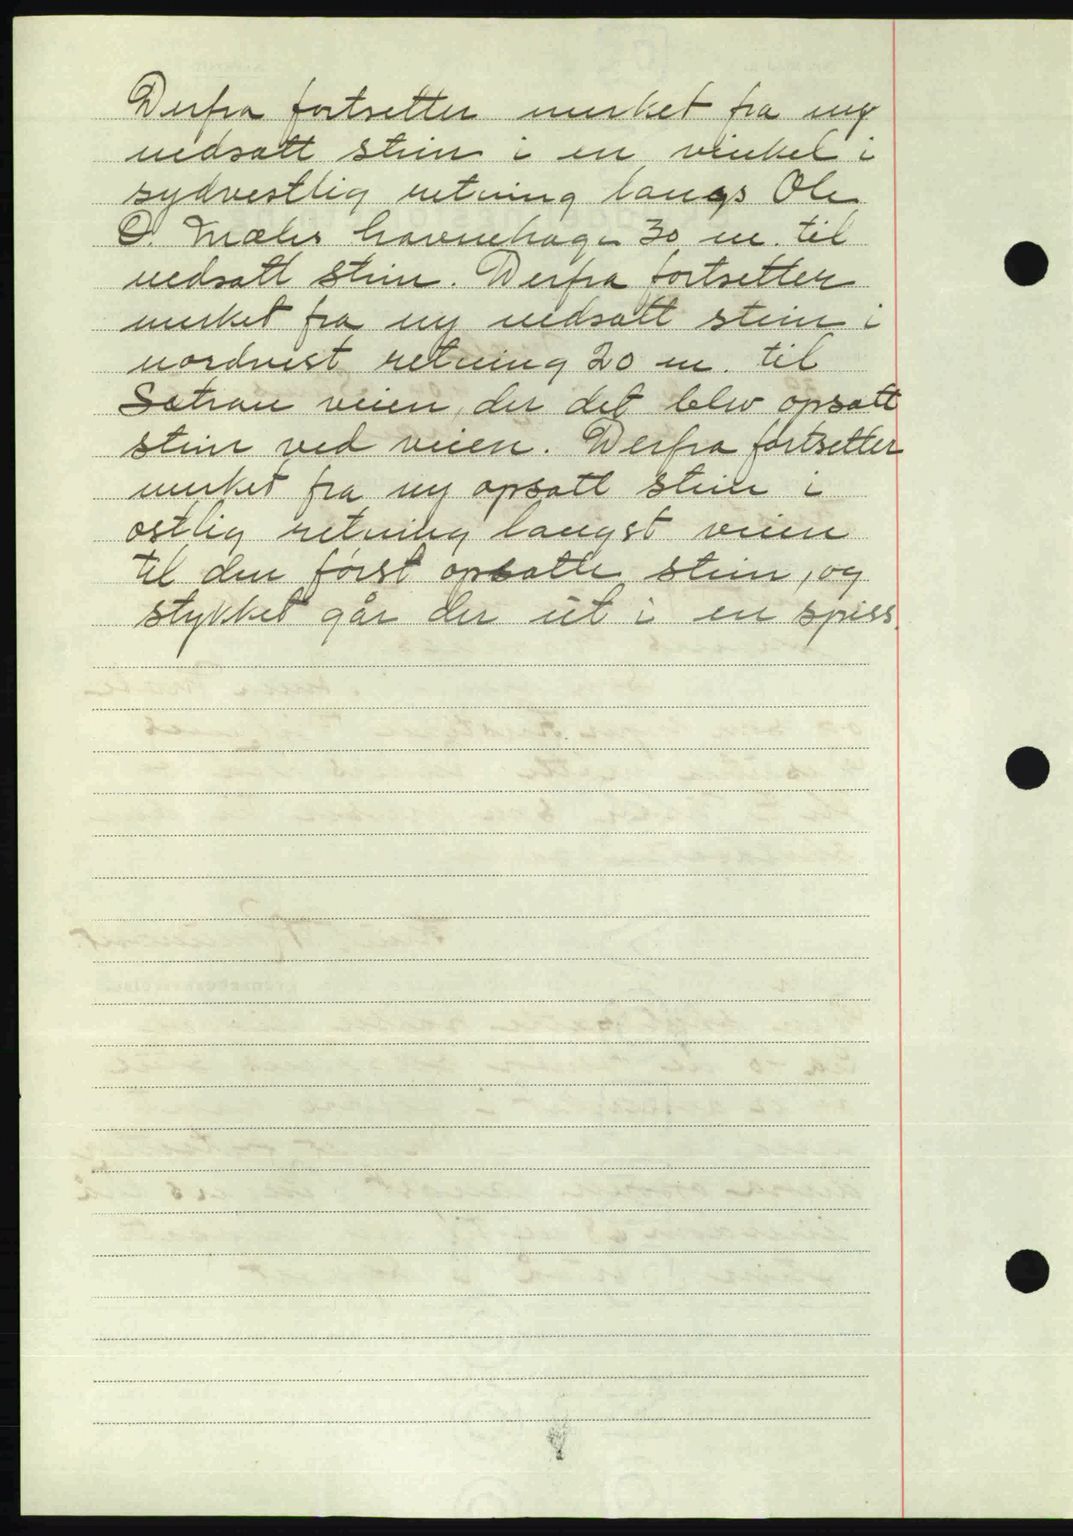 Derfra fortsetter merket fra ny
nedsatt stein i en vinkel i
sydvestlig retning langs Ole
O. Mæles havnehage 30 m. til
nedsatt stein. Derfra fortsetter
merket fra ny nedsatt stein i
nordvest retning 20 m. til
Sætran veien, der det blev opsatt
stein ved veien. Derfra fortsetter
merket fra ny opsatt stein i
østlig retning langst veien
til den først opsatte stein, og
stykket går der ut i en spiss.